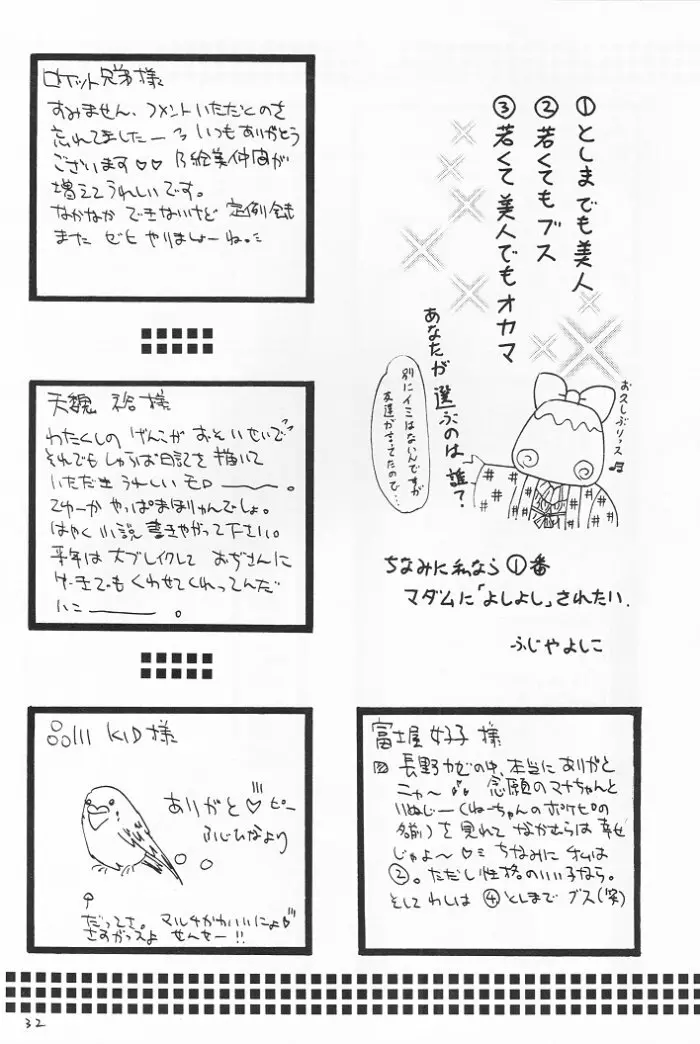 ①としまでも美人
②若くてもブス
③若くて美人でもオカマ
あなたが選ぶのは誰?
別にイミはないんですが
友達が言ってたので…
お久しぶりっス♫
ちなみに私なら①番
マダムに「よしよし」されたい.
ふじやよしこ
ロケット兄弟様
すみません、コメントいただくのを
忘れてましたー いつもありがとう
ございます♡♡ 乃絵美仲間が
増えてうれしいです。
なかなか できないけど 定例会
また ゼヒ やりましょーね。
天魏 裕 様
わたくしの げんこが おそいせいで
それでも しゃらお日記を描いて
いただき うれしい モロ ――― 。
てゆーか やっぱ まほりゅんでしょ。
はやく 小説 書きやがって下さい。
来年は 大ブレイクして おぢさんに
ケーキでも くわせてくれってんだ
いこ ――― 。
品川 KID 様
ありがと♡ピー
ふじひなより
だってさ。マルチかわいいにょ♡
さすがっスよ せんせー!!
富士屋 好子 様
長野カゼの中、本当に ありがと
ニャ〜 念願のマナちゃんと
いぬじー(ねーちゃんのポケピの
名前)を 見れて なかむらは 幸せ
じゃよ〜♡ ちなみに オレは
②。ただし性格のいい子なら。
そして わしは ④としまで ブス(笑)
32